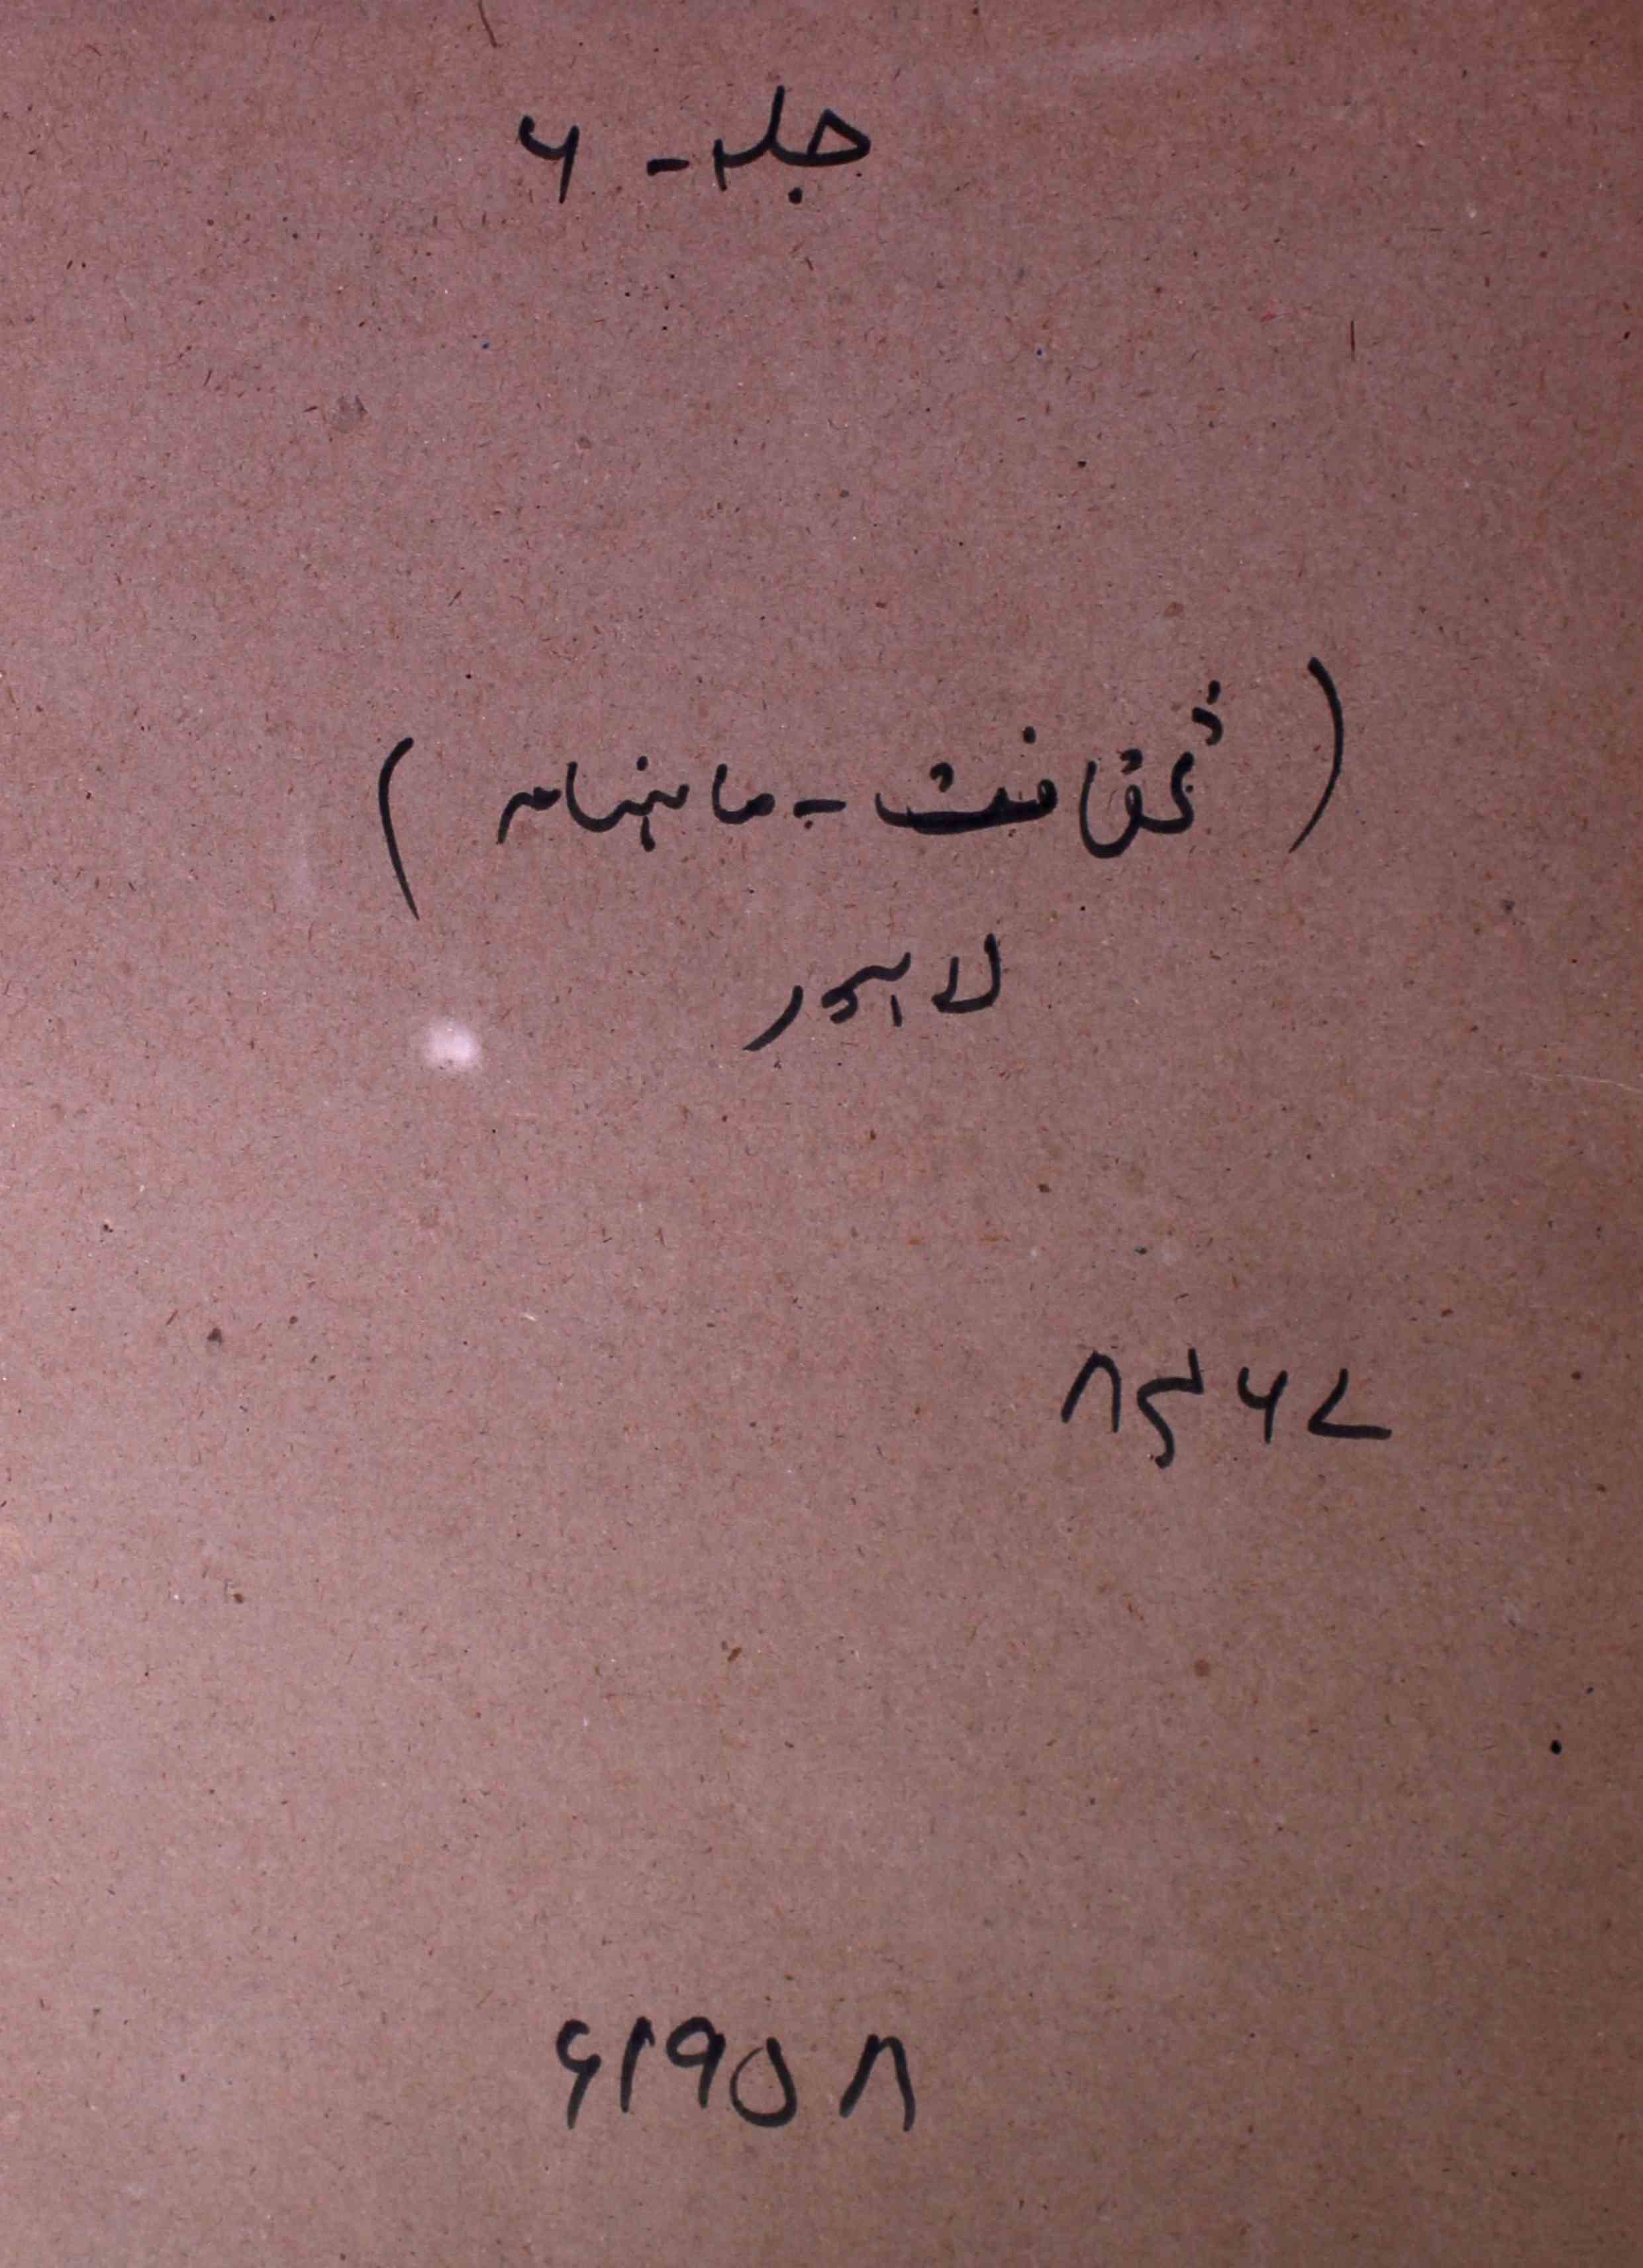 جلد - ۶
(ثقافت - ماہنامہ)
لاہور
۸۴۶۷
۱۹۵۸ء